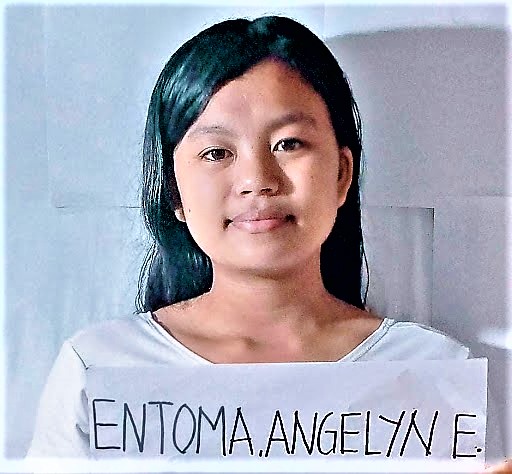 ENTOMA,ANGELYN E.